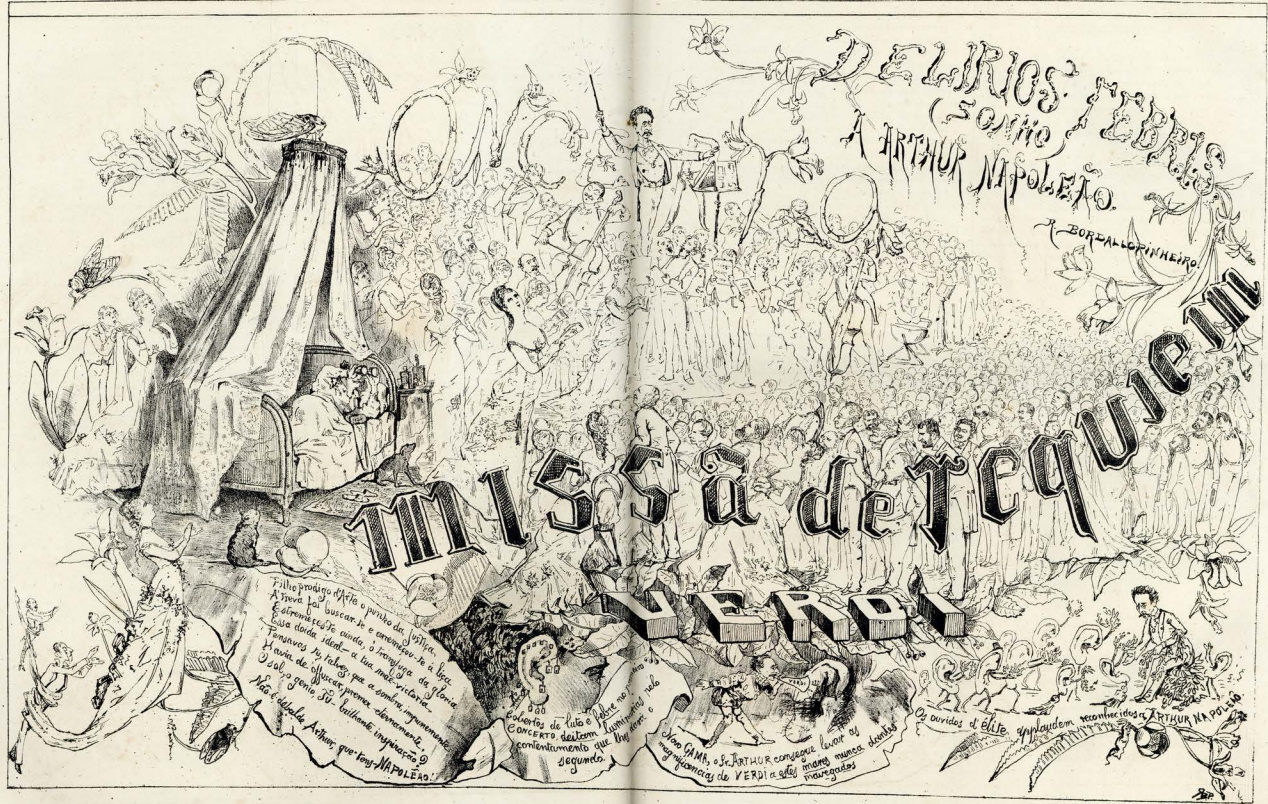 CONCERTO
DELIRIOS FEBRIS
(SONHO)
A ARTHUR NAPOLEÃO.
R. BORDALLO PINHEIRO.
missa de requiem
VERDI
Filho prodigo d'Arte o punho da Justiça
A treva foi buscar-te e arremessou-te á liça
Estremeces-te ainda, o tranfuga da gloria
Essa doida ideal – a tua victoria
Pensavas tu, talvez que a sombra,
Havia de offuscar, premer eternamente
O sol, o genio brilhante inspiração?
Não é debalde Arthur, que tens – NAPOLEÃO!
Cobertos de luto no
CONCERTO, deitam luminarias pelo
contentamento que lhes o
segundo.
Novo GAMA, o Sr. ARTHUR consegue levar as
magnificencias de VERDI a estes mares nunca d'antes
navegados
Os ouvidos d'élite applaudem reconhecidos a ARTHUR NAPOLEÃO